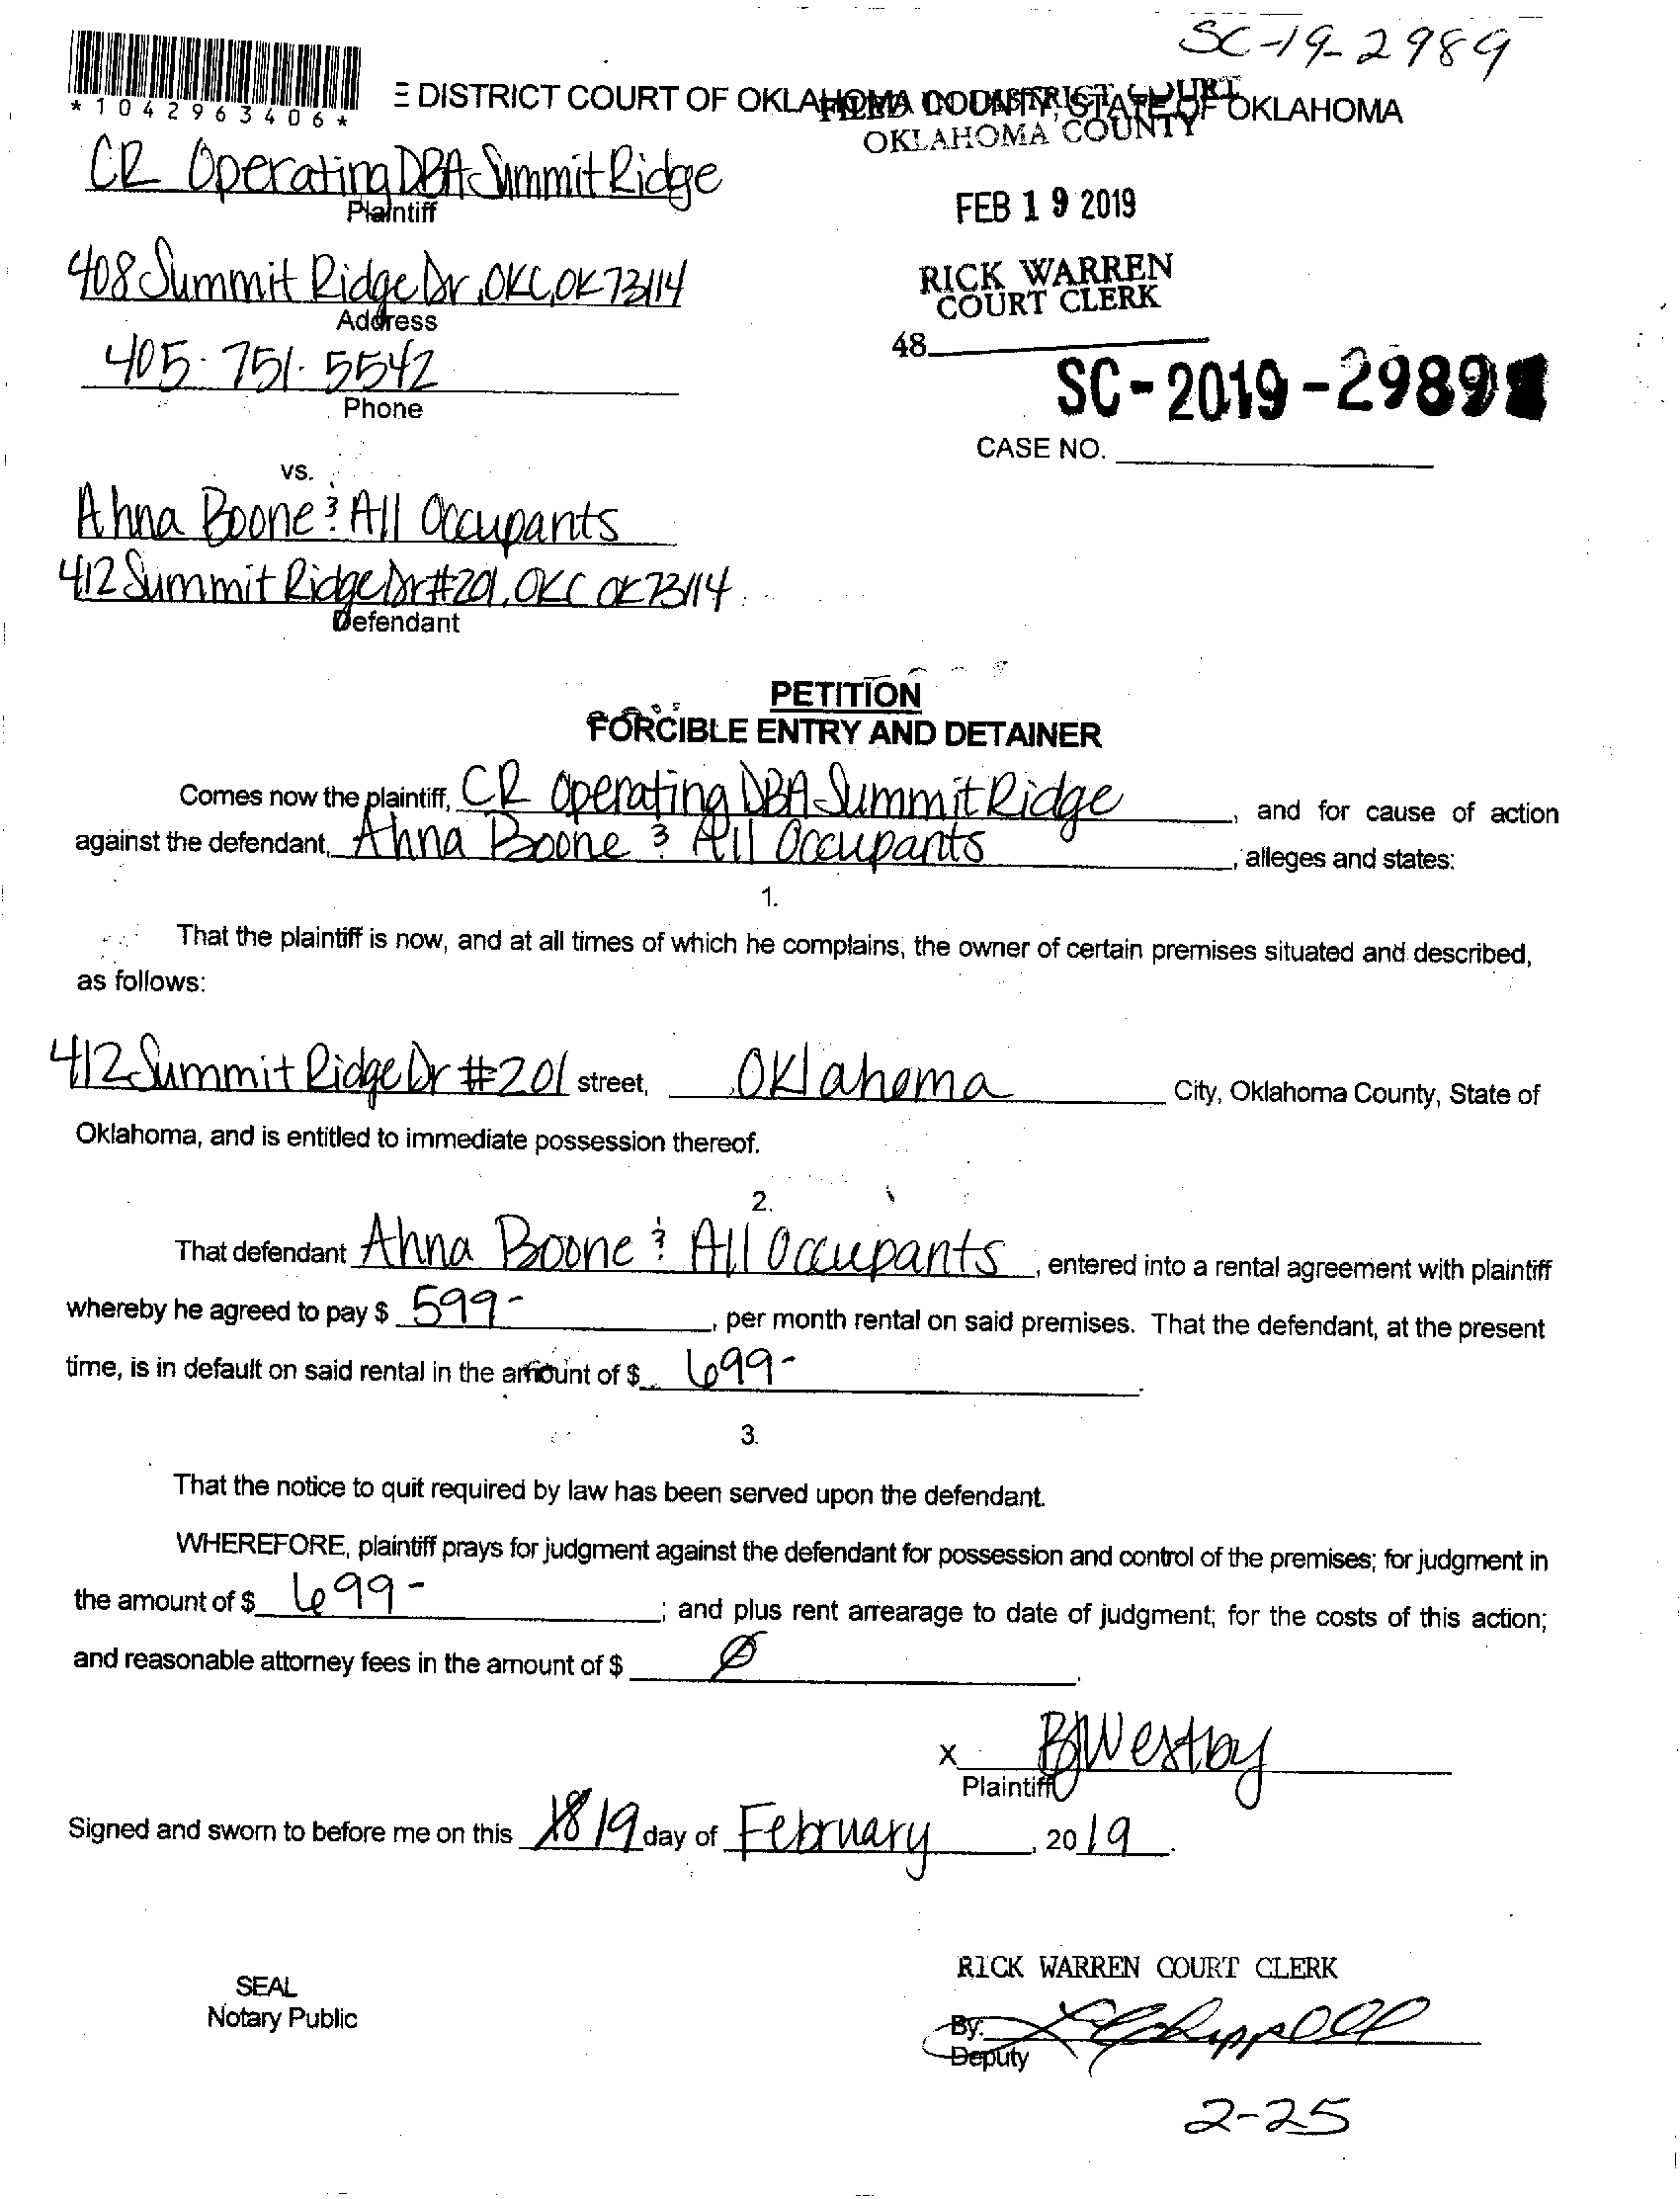 SC-19-2989
*1042963406*
E DISTRICT COURT OF OKLAHOMA COUNTY, STATE OF OKLAHOMA
FILED IN DISTRICT COURT
OKLAHOMA COUNTY
CR Operating DBA Summit Ridge
Plaintiff
FEB 19 2019
408 Summit Ridge Dr, OKC, OK 73114
Address
RICK WARREN
COURT CLERK
405-751-5542
Phone
48
SC-2019-2989
CASE NO.
vs.
Ahna Boone & All Occupants
412 Summit Ridge Dr #201, OKC OK 73114
Defendant
PETITION
FORCIBLE ENTRY AND DETAINER
Comes now the plaintiff, CR Operating DBA Summit Ridge, and for cause of action
against the defendant, Ahna Boone & All Occupants, alleges and states:
1.
That the plaintiff is now, and at all times of which he complains, the owner of certain premises situated and described,
as follows:
412 Summit Ridge Dr #201 street, Oklahoma City, Oklahoma County, State of
Oklahoma, and is entitled to immediate possession thereof.
2.
That defendant Ahna Boone & All Occupants, entered into a rental agreement with plaintiff
whereby he agreed to pay $ 599-, per month rental on said premises. That the defendant, at the present
time, is in default on said rental in the amount of $ 699-.
3.
That the notice to quit required by law has been served upon the defendant.
WHEREFORE, plaintiff prays for judgment against the defendant for possession and control of the premises; for judgment in
the amount of $ 699-; and plus rent arrearage to date of judgment; for the costs of this action;
and reasonable attorney fees in the amount of $ Ø.
X BJWestby
Plaintiff
Signed and sworn to before me on this 18 19 day of February, 2019.
RICK WARREN COURT CLERK
SEAL
Notary Public
By:
Deputy
2-25